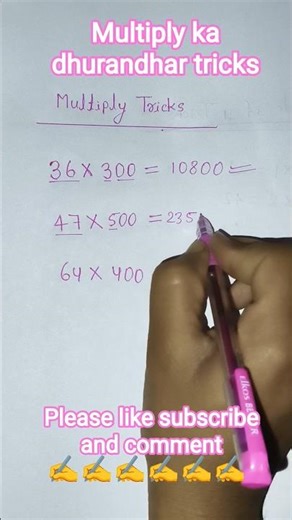 Multiply ka
dhurandhar tricks
Multiply Tricks
36 × 300 = 10800
47 × 500 = 235
64 × 400
elkos
Please like subscribe
and comment
✍️✍️✍️✍️✍️✍️